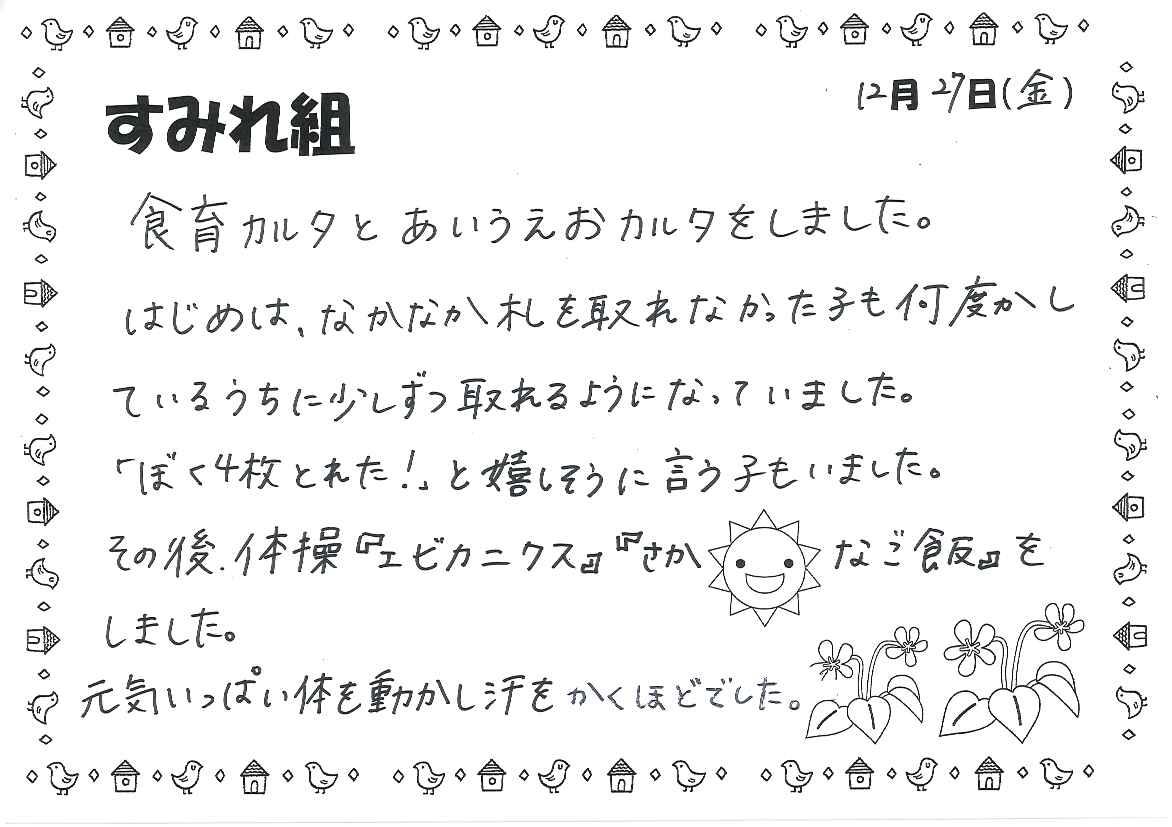 すみれ組
12月27日(金)
食育カルタとあいうえおカルタをしました。
はじめは、なかなか札を取れなかった子も何度かし
ているうちに少しずつ取れるようになっていました。
「ぼく4枚とれた!」と嬉しそうに言う子もいました。
その後、体操『エビカニクス』『さかなご飯』を
しました。
元気いっぱい体を動かし汗をかくほどでした。